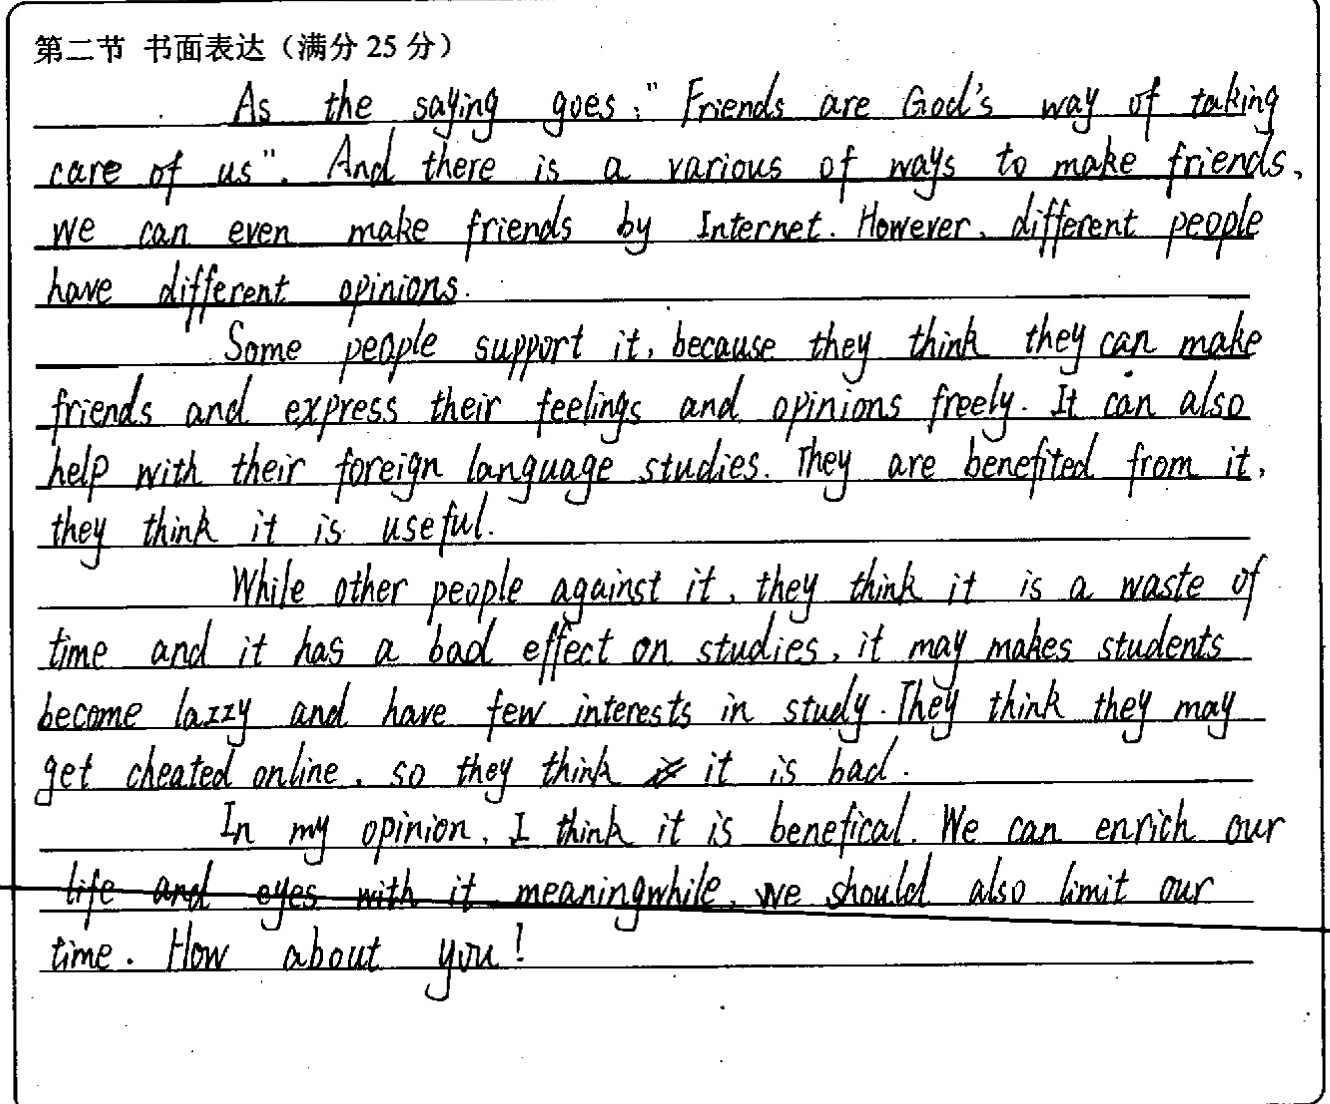 第二节 书面表达（满分 25 分）
As the saying goes: "Friends are God's way of taking
care of us". And there is a various of ways to make friends,
we can even make friends by Internet. However, different people
have different opinions.
Some people support it, because they think they can make
friends and express their feelings and opinions freely. It can also
help with their foreign language studies. They are benefited from it,
they think it is useful.
While other people against it, they think it is a waste of
time and it has a bad effect on studies, it may makes students
become lazzy and have few interests in study. They think they may
get cheated online, so they think it is bad.
In my opinion, I think it is benefical. We can enrich our
life and eyes with it meaningwhile, we should also limit our
time. How about you!